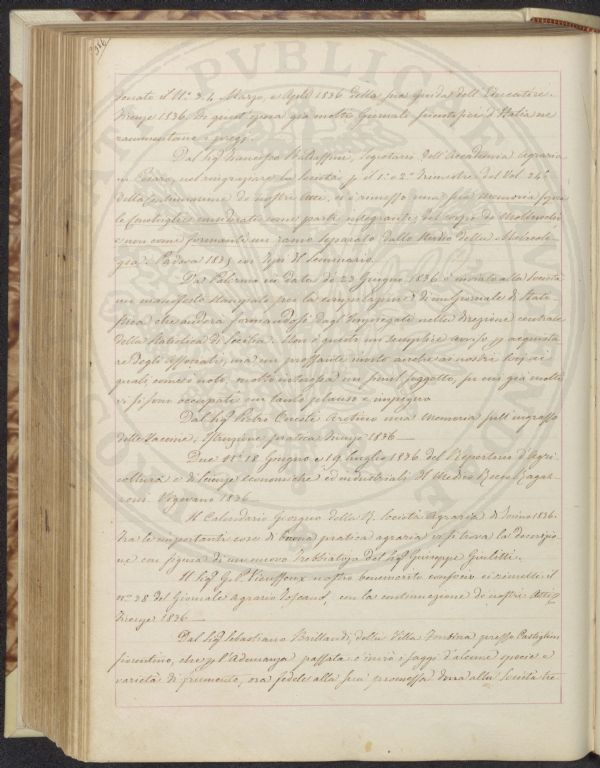 386
Firenze 1836. In questi giorni già molti Giornali scientifici d'Italia ne
rammentano i pregj.
Dal Sig. Francesco Baldassini, Segretario dell'Accademia Agraria
in Pesaro, nel ringraziare la Società p. il 1.o e 2.o Trimestre del Vol. 24.o
della continuazione de nostri Atti, ci è rimesso una sua memoria sopra
le Conchiglie considerate come parti integranti del corpo de Molluschi
e non come formanti un ramo separato dallo studio della Malacolo
gia. Padova 1835 coi Tipi del Seminario.
Da Palermo in data de 23 Giugno 1836 è inviato alla Società
un manifesto stampato per la compilazione di un Giornale di Stati
stica che andrà formandosi dagl'Impiegati nella Direzione centrale
della Statistica di Sicilia. Non è questo un semplice avviso p. acquista
re degli Associati, ma un pressante invito anche ai nostri Colleghi ai
quali, come è noto, molto interessa un simil soggetto, su cui già molti
vi si sono occupati con tanto plauso e impegno
Dal Sig. Pietro Onesti Aretino una memoria sull'ingrasso
delle Vaccine. Istruzione pratica Firenze 1836 —
Due N.i 18 Giugno e 19 Luglio 1836 del Repertorio d'Agri
coltura e di Scienze economiche ed industriali del Medico Rocco Ragaz
zoni. Vigevano 1836 —
Il Calendario Georgico della R. Società Agraria di Torino 1836.
Tra le importanti cose di buona pratica agraria vi si trova la descrizio
ne con figura di un nuovo Trebbiatojo del Sig. Giuseppe Giulitti.
Il Sig. G. P. Vieusseux nostro benemerito consocio ci rimette il
n.o 38 del Giornale Agrario Toscano, con la continuazione de nostri Atti.
Firenze 1836 —
Dal Sig. Sebastiano Brillandi, della Villa presso Castiglion
fiorentino, che p. l'Adunanza passata c'inviò i saggi d'alcune specie e
varietà di frumento, ora fedele alla sua promessa dona alla Società tre